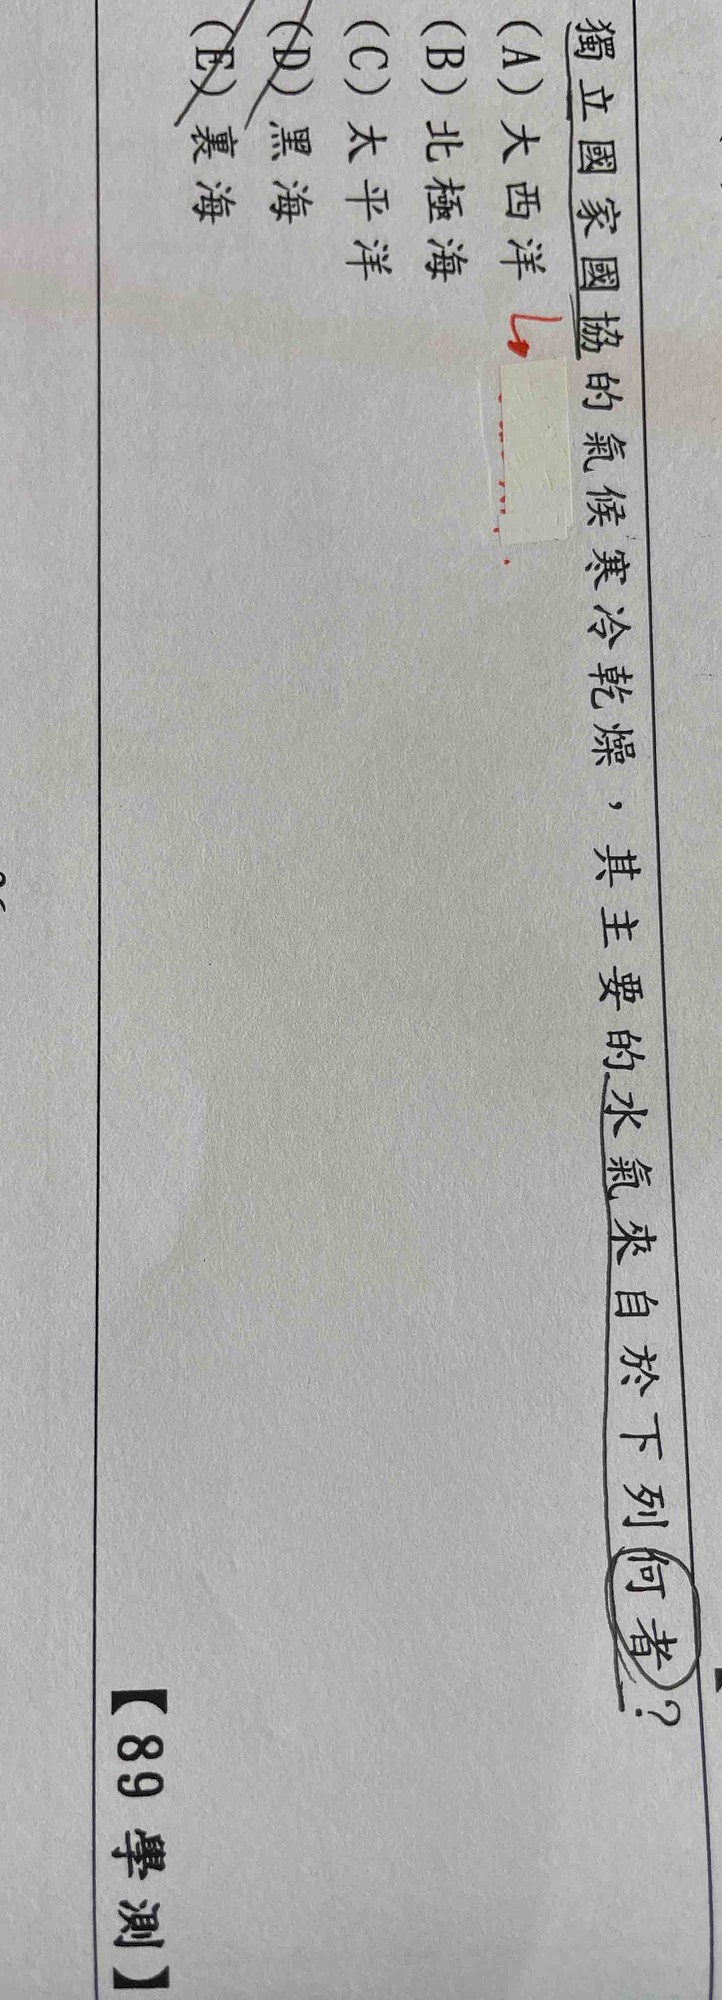 獨立國家國協的氣候寒冷乾燥，其主要的水氣來自於下列何者？
(A)大西洋
(B)北極海
(C)太平洋
(D)黑海
(E)裏海
【89學測】